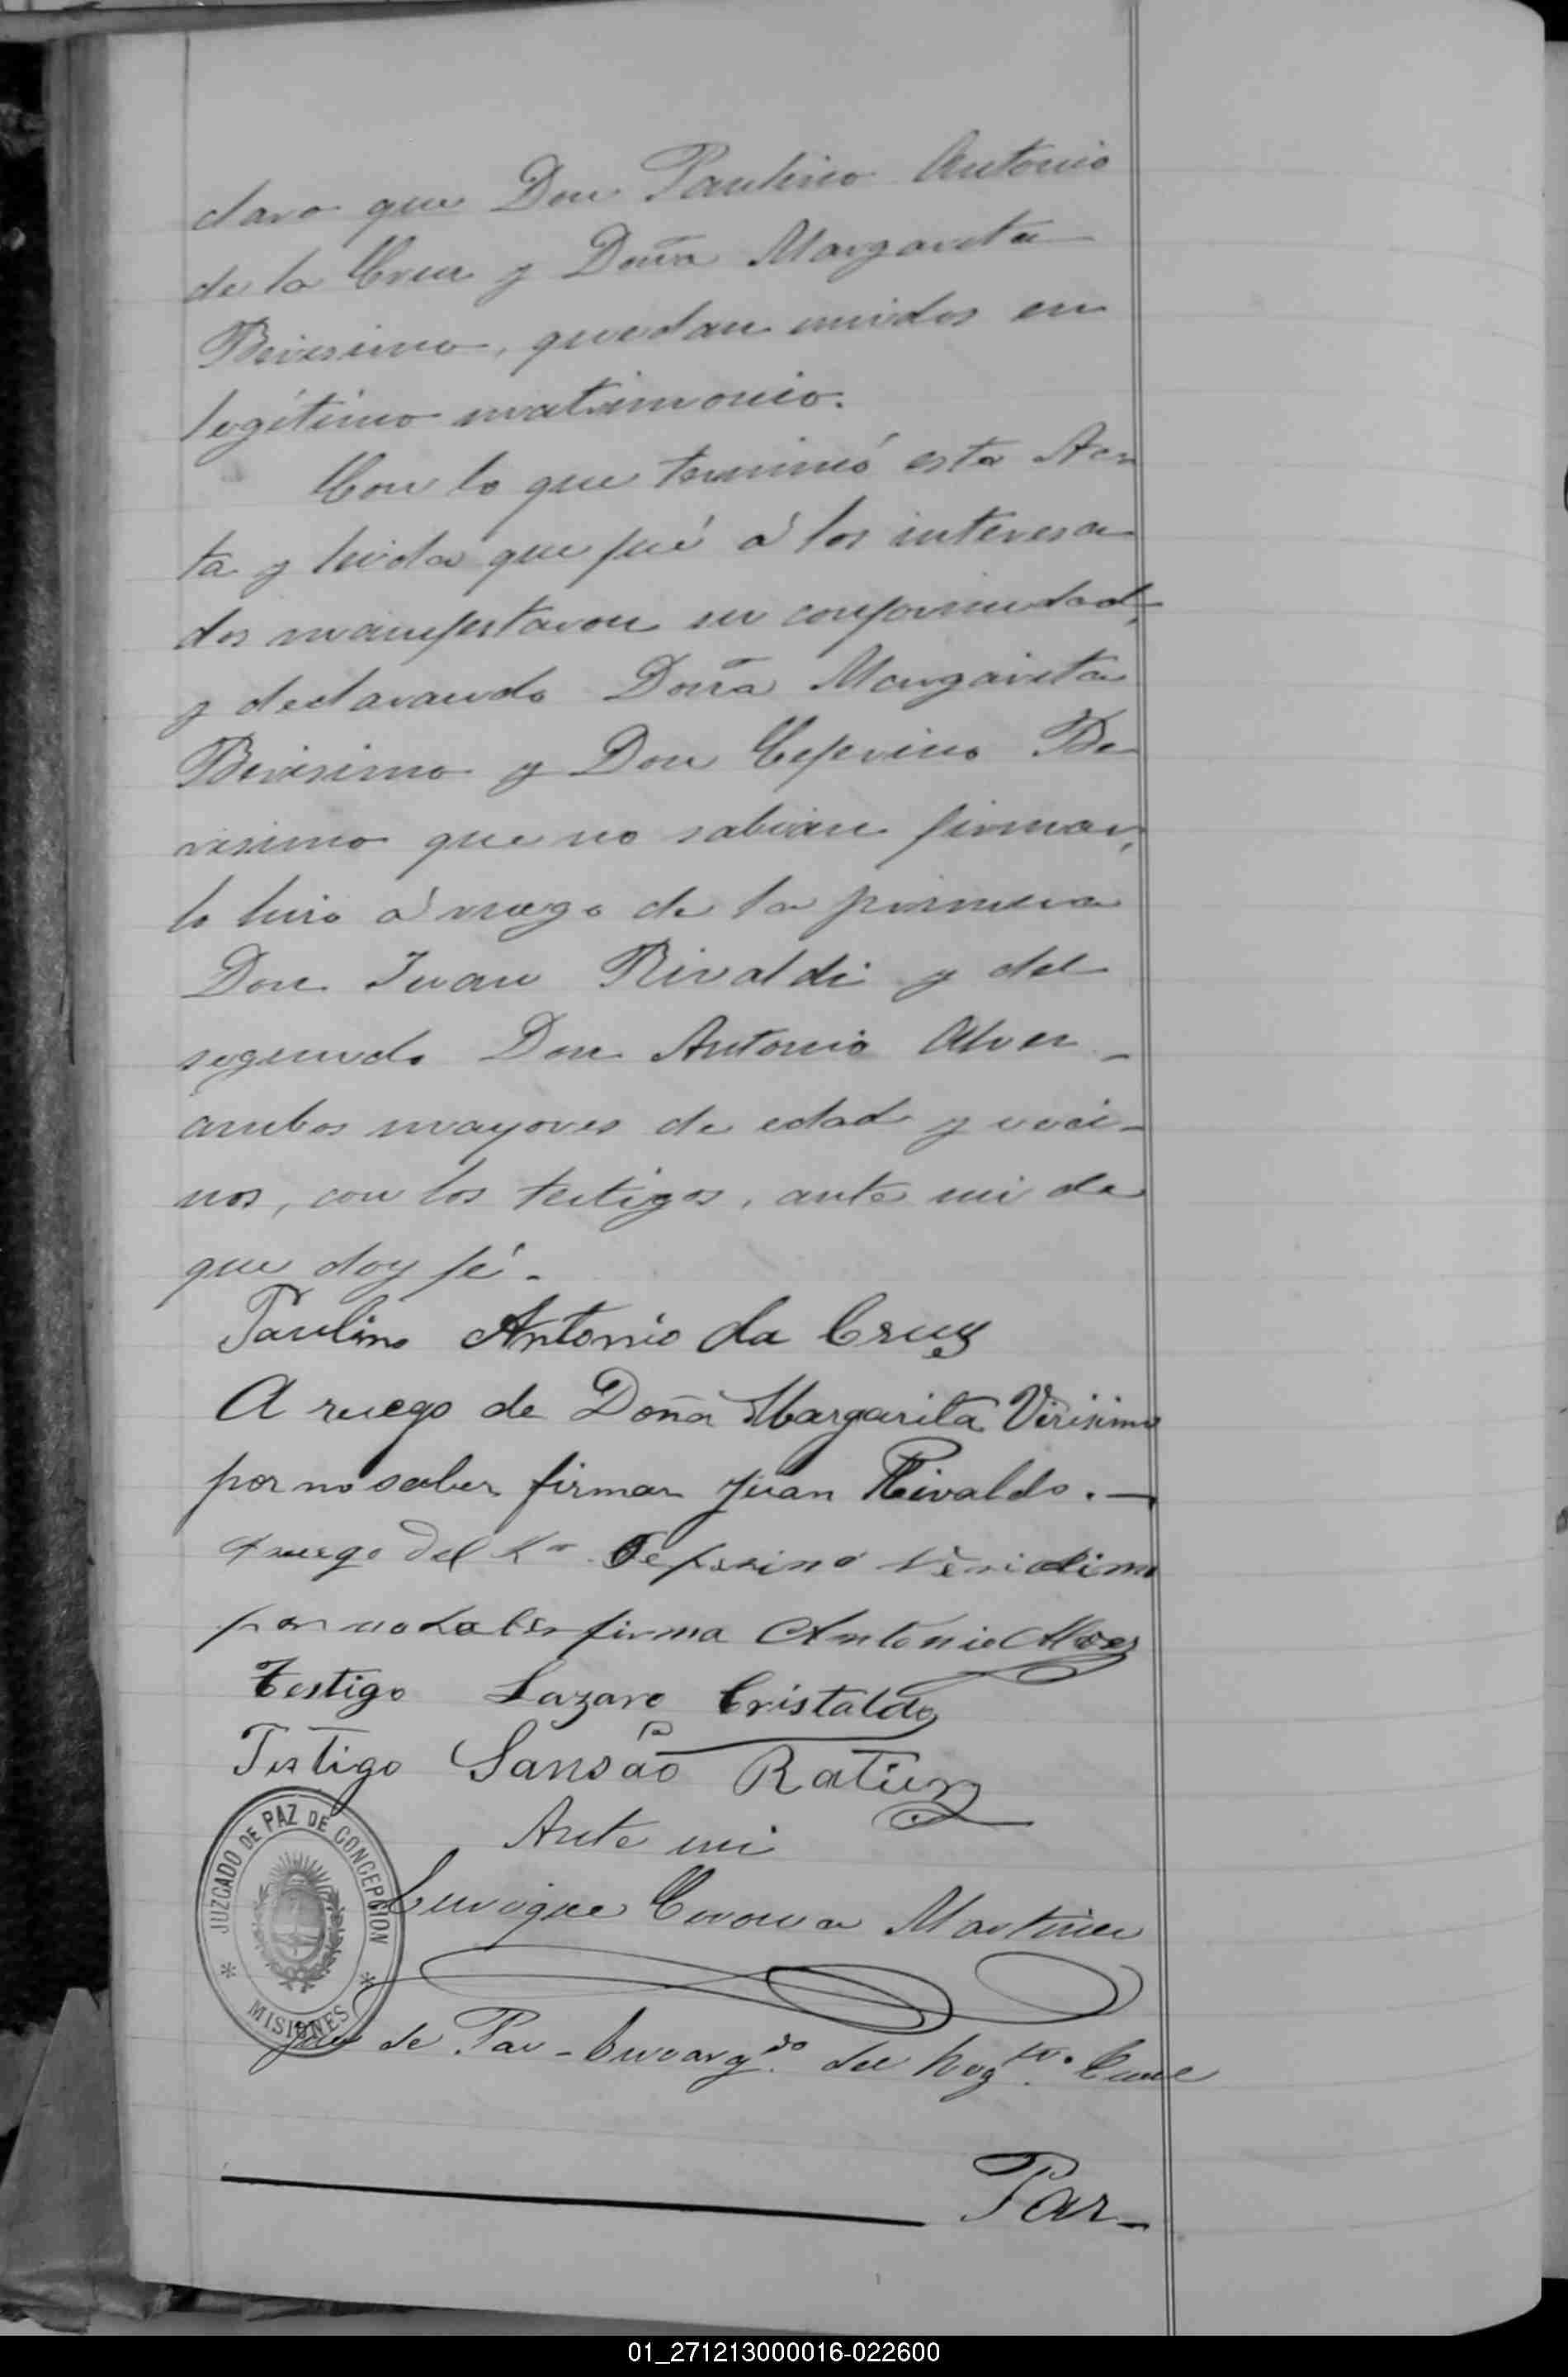 claro que Don Paulino Antonio
de la Cruz y Doña Margarita
Birisimo, quedan unidos en
legítimo matrimonio.
Con lo que terminó esta Ac
ta y leida que fué á los interesa
dos manifestaron su conformidad,
y declarando Doña Margarita
Birisimo y Don Ceferino Be
risimo que no sabian firmar,
lo hizo á ruego de la primera
Don Juan Rivaldi y del
segundo Don Antonio Alvez
ambos mayores de edad y veci-
nos, con los testigos, ante mi de
que doy fé.-
Paulino Antonio da Cruz
A ruego de Doña Margarita Virisimo
por no saber firmar Juan Rivaldo.—
A ruego del Sr Seferino Verisimo
por no saber firma Antonio Alvez
Testigo Lazaro Cristaldo
Testigo Sansão Ratier
Ante mi
Enrique Corona Martinez
Juez de Paz - Encargdo del Regtro Civil
JUZGADO DE PAZ DE CONCEPCION
* MISIONES *
Par-
01_271213000016-022600